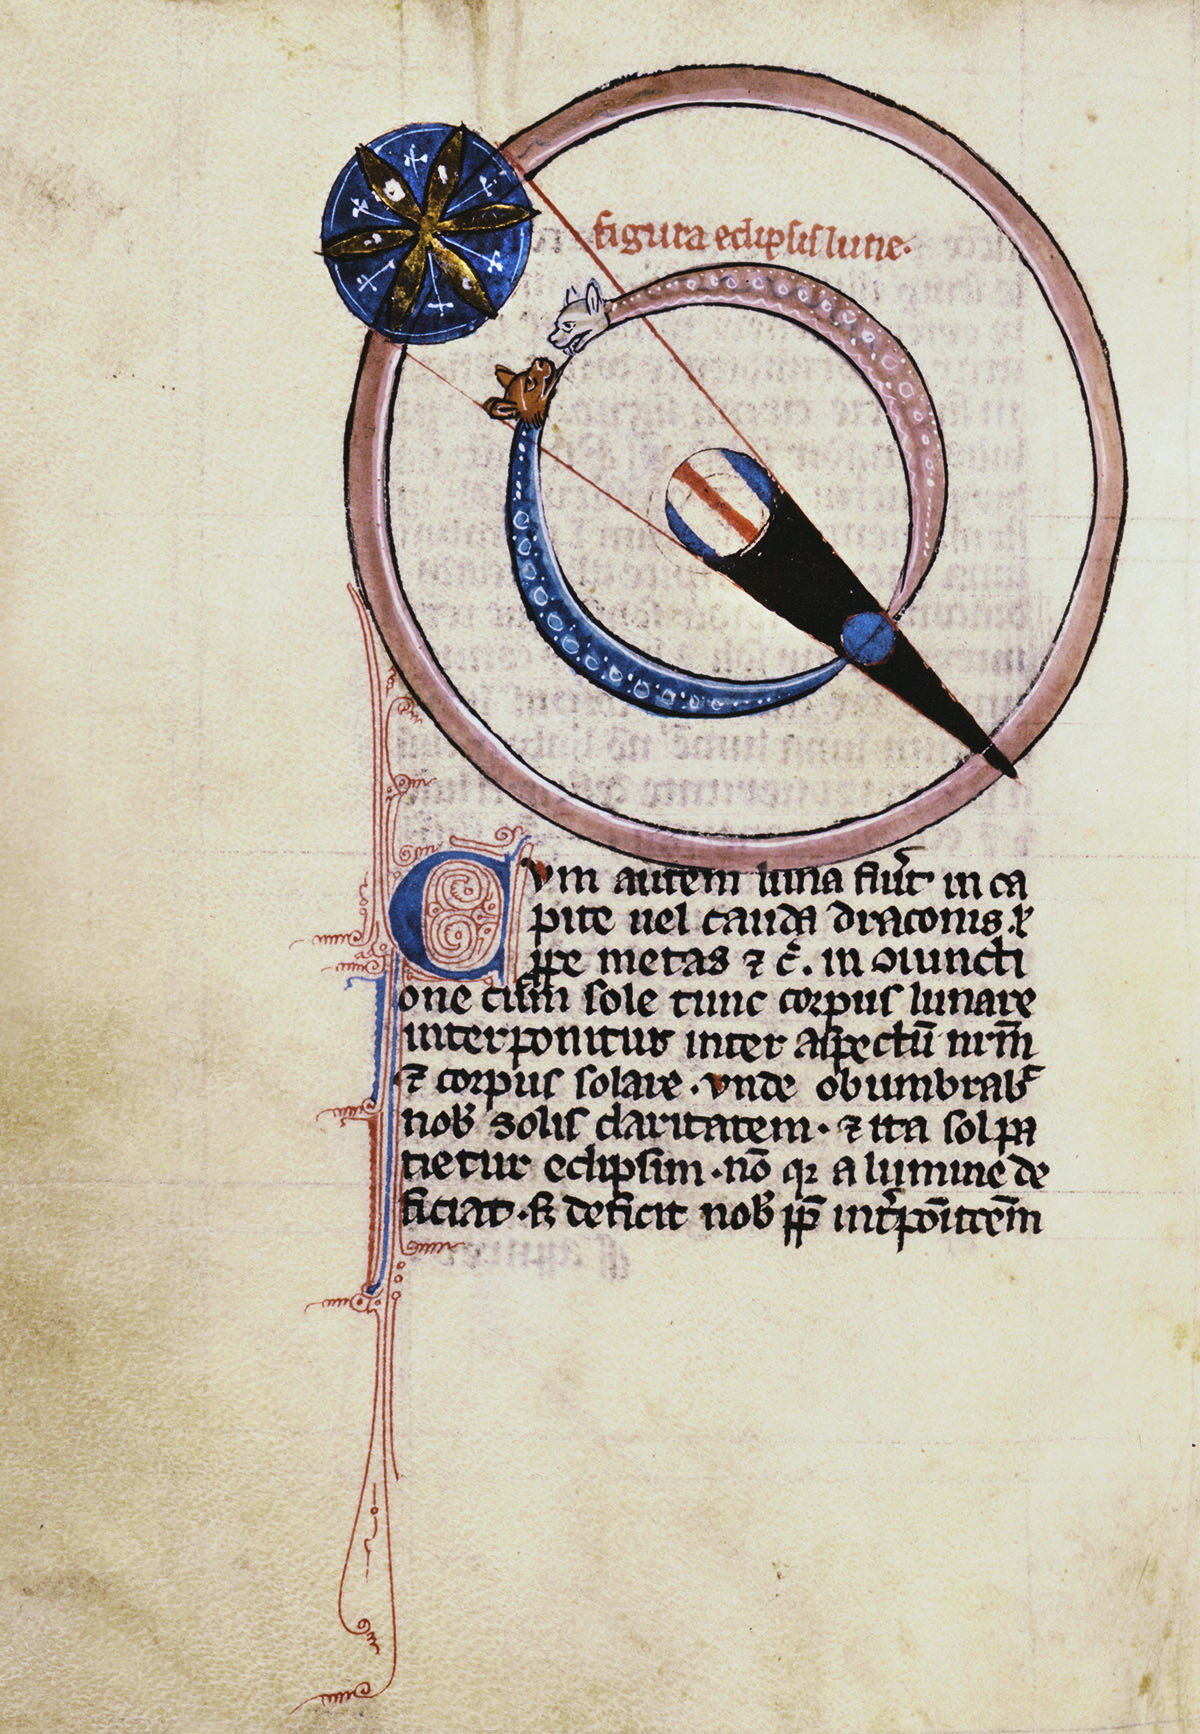 figura eclipsis lune.
Cvm autem luna fiūt in ca
pite uel cauda draconis. ꝉ
ꝓpe metas ⁊ c̄. in ↄiuncti
one cum sole tunc corpus lunare
interponitur inter aspectū nrm̄
⁊ corpus solare. vnde obumbrabͭ
nobꝭ solis claritatem. ⁊ ita sol pa
tietur eclipsim. nō qꝛ a lumine de
ficiat. sꝫ deficit nobꝭ ꝓp̄ int̓pōitōem̄